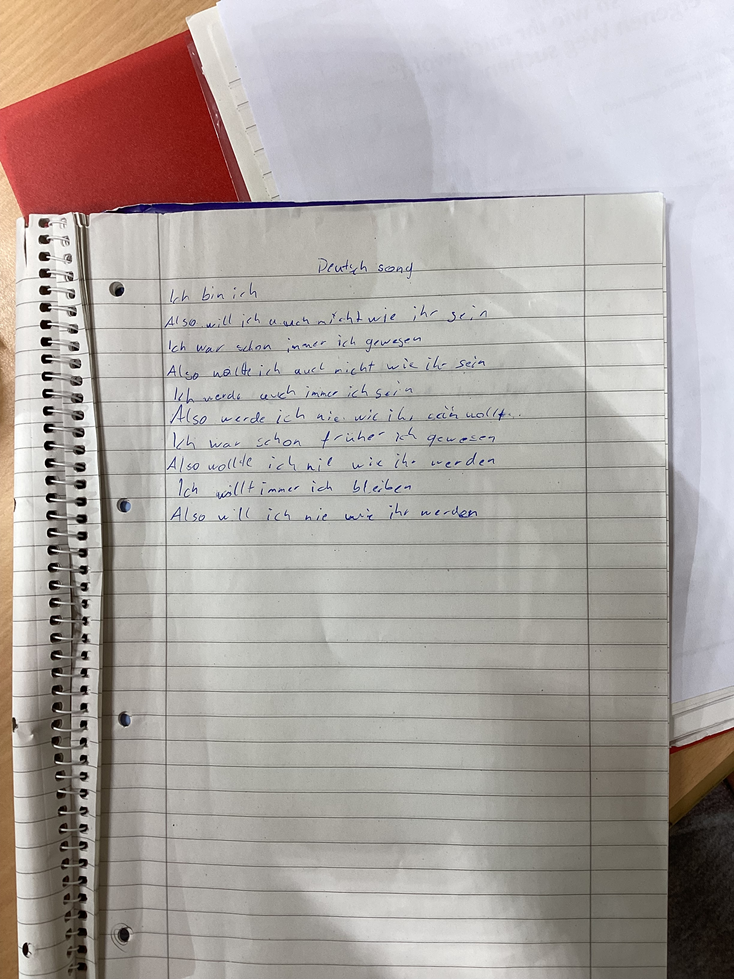 Deutsch song
Ich bin ich
Also will ich auch nicht wie ihr sein
Ich war schon immer ich gewesen
Also wollte ich auch nicht wie ihr sein
Ich werde auch immer ich sein
Also werde ich nie wie ihr sein
Ich war schon früher ich gewesen
Also wollte ich nie wie ihr werden
Ich will immer ich bleiben
Also will ich nie wie ihr werden